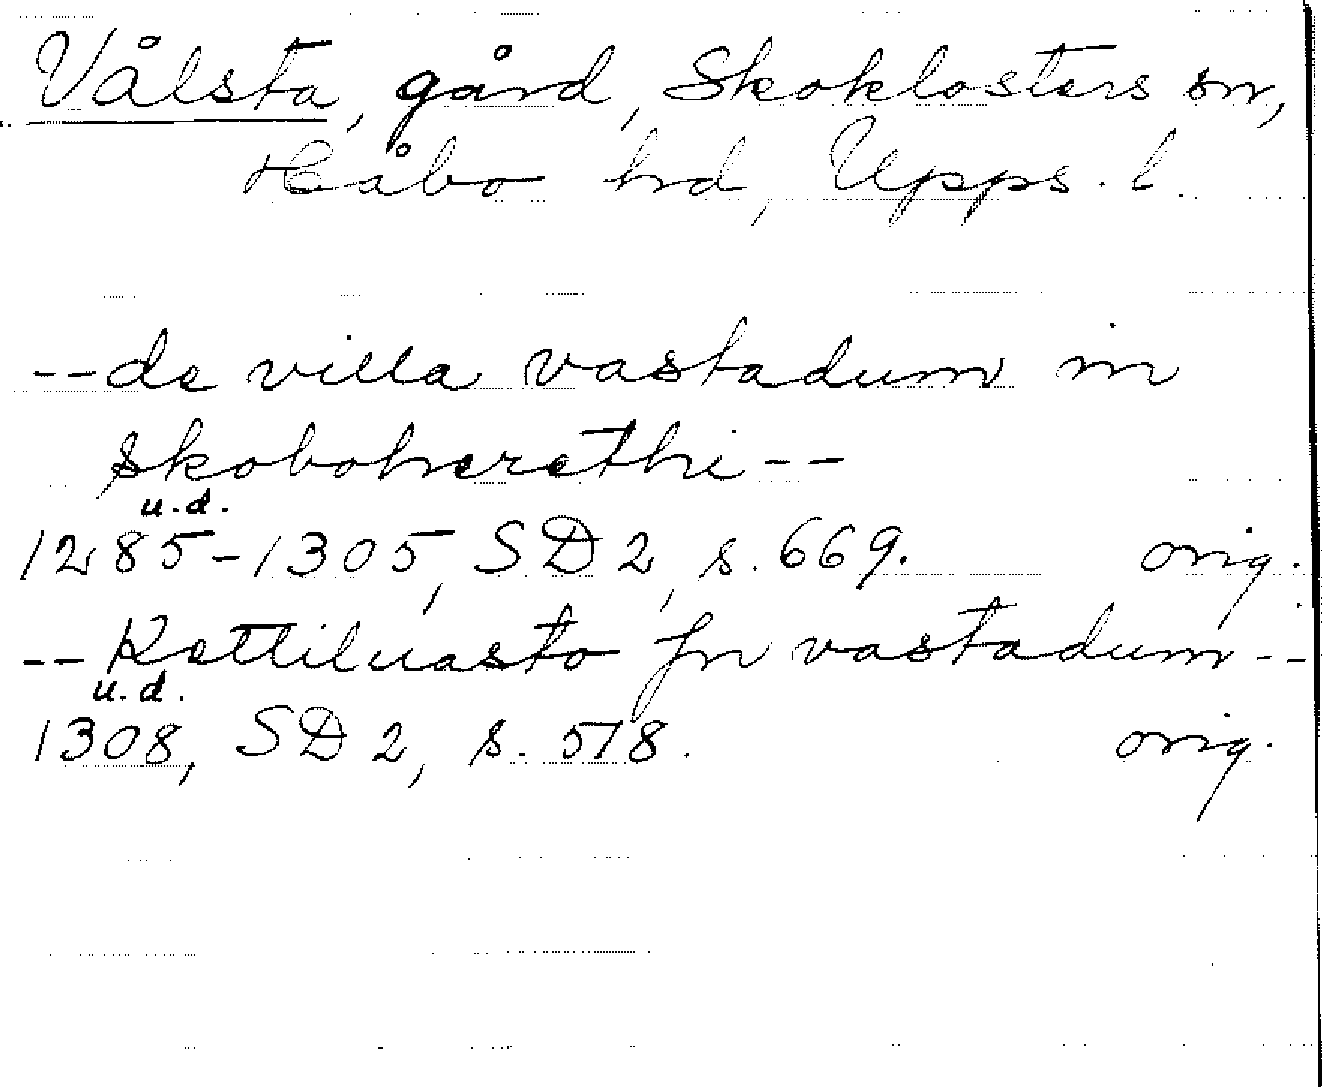 Vålsta, gård, Skoklosters sn,
Håbo hd, Upps. l.
--de villa vastadum in
skoboherethi--
u.d.
1285-1305, SD 2, s. 669. orig.
--Kettiluasto fn vastadum--
u.d.
1308, SD 2, s. 578. orig.